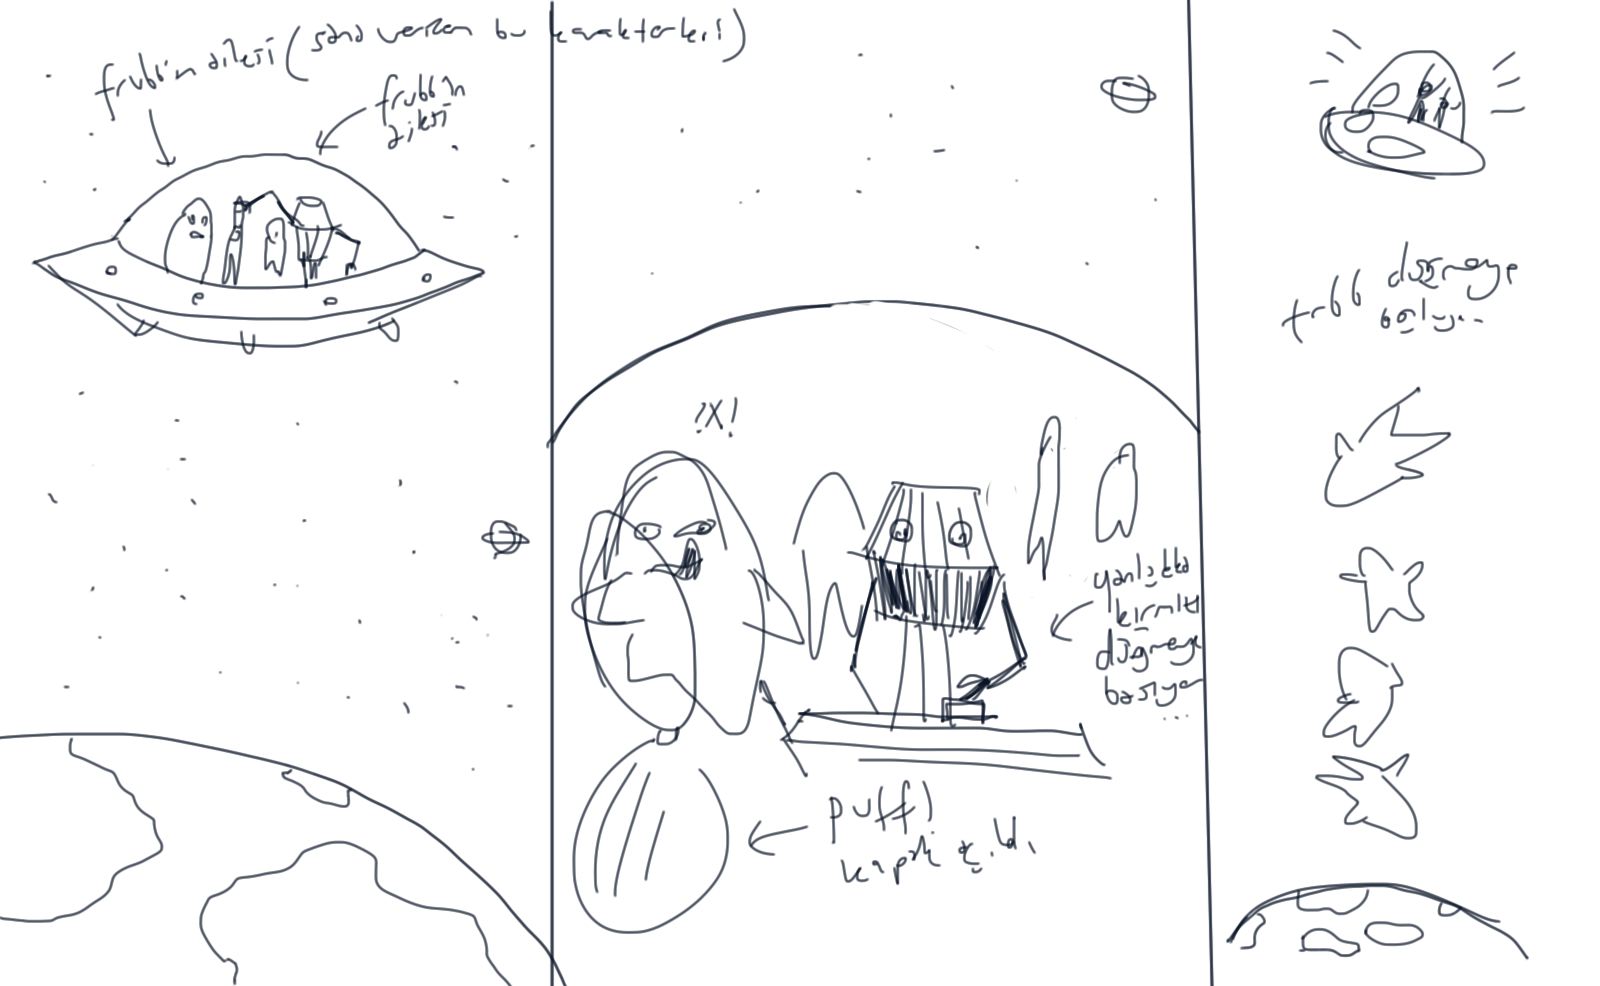 frubb'ın ailesi (sana verilen bu karakterleri)
frubb'ın
ailesi
!X!
yanlışlıkla
kırmızı
düğmeye
basıyor
...
puff!
kapak açıldı
frubb düğmeye
basıyor...